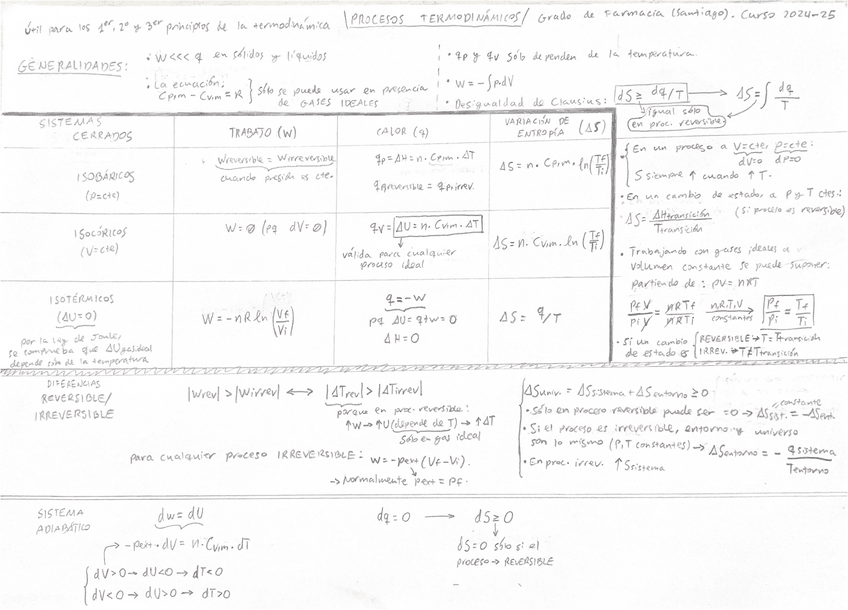 Útil para los 1er, 2º y 3er principios de la termodinámica \PROCESOS TERMODINÁMICOS/ Grado de Farmacia (Santiago). Curso 2024-25
GENERALIDADES:
· W<<< q en sólidos y líquidos
· La ecuación: Cp,m - Cv,m = R } sólo se puede usar en presencia de GASES IDEALES
· qp y qv sólo dependen de la temperatura.
· W = -∫p·dV
· Desigualdad de Clausius: dS ≥ dq/T → ΔS = ∫ dq/T
igual sólo en proc. reversible
SISTEMAS CERRADOS
TRABAJO (W)
CALOR (q)
VARIACIÓN DE ENTROPÍA (ΔS)
ISOBÁRICOS (p=cte)
Wreversible = Wirreversible
cuando presión es cte.
qp = ΔH = n · Cp,m · ΔT
qp,reversible = qp,irrev.
ΔS = n · Cp,m · ln(Tf/Ti)
ISOCÓRICOS (V=cte)
W = Ø (pq dV = 0)
qv = ΔU = n · Cv,m · ΔT
válida para cualquier proceso ideal
ΔS = n · Cv,m · ln(Tf/Ti)
ISOTÉRMICOS (ΔU=0)
por la ley de Joule, se comprueba que ΔU gas ideal depende sólo de la temperatura
W = -nR ln(Vf/Vi)
q = -W
pq ΔU = q+w = 0
ΔH = 0
ΔS = q/T
· En un proceso a V=cte, p=cte:
dV=0 dP=0
S siempre ↑ cuando ↑ T.
· En un cambio de estado, a P y T ctes.:
ΔS = ΔHtransición/Ttransición (si proceso es reversible)
· Trabajando con gases ideales a volumen constante se puede suponer:
partiendo de: PV = nRT
Pf V/Pi V = nRTf/nRTi n,R,T,V constantes → Pf/Pi = Tf/Ti
· Si un cambio de estado es { REVERSIBLE → T = Ttransición
IRREV. → T ≠ Ttransición
DIFERENCIAS REVERSIBLE/ IRREVERSIBLE
|Wrev| > |Wirrev| ↔ |ΔTrev| > |ΔTirrev|
porque en proc. reversible:
↑W → ↑U (depende de T) → ↑ΔT
sólo en gas ideal
para cualquier proceso IRREVERSIBLE: W = -pext (Vf - Vi).
→ Normalmente pext = pf.
ΔSuniv. = ΔSsistema + ΔSentorno ≥ 0
constante
· Sólo en proceso reversible puede ser =0 → ΔSsist. = -ΔSent.
· Si el proceso es irreversible, entorno y universo son lo mismo (P,T constantes) → ΔSentorno = - qsistema/Tentorno
· En proc. irrev. ↑ Ssistema
SISTEMA ADIABÁTICO
dw = dU
→ -pext · dV = n · Cv,m · dT
{ dV>0 → dU<0 → dT<0
dV<0 → dU>0 → dT>0
dq = 0 → dS ≥ 0
dS=0 sólo si el proceso → REVERSIBLE